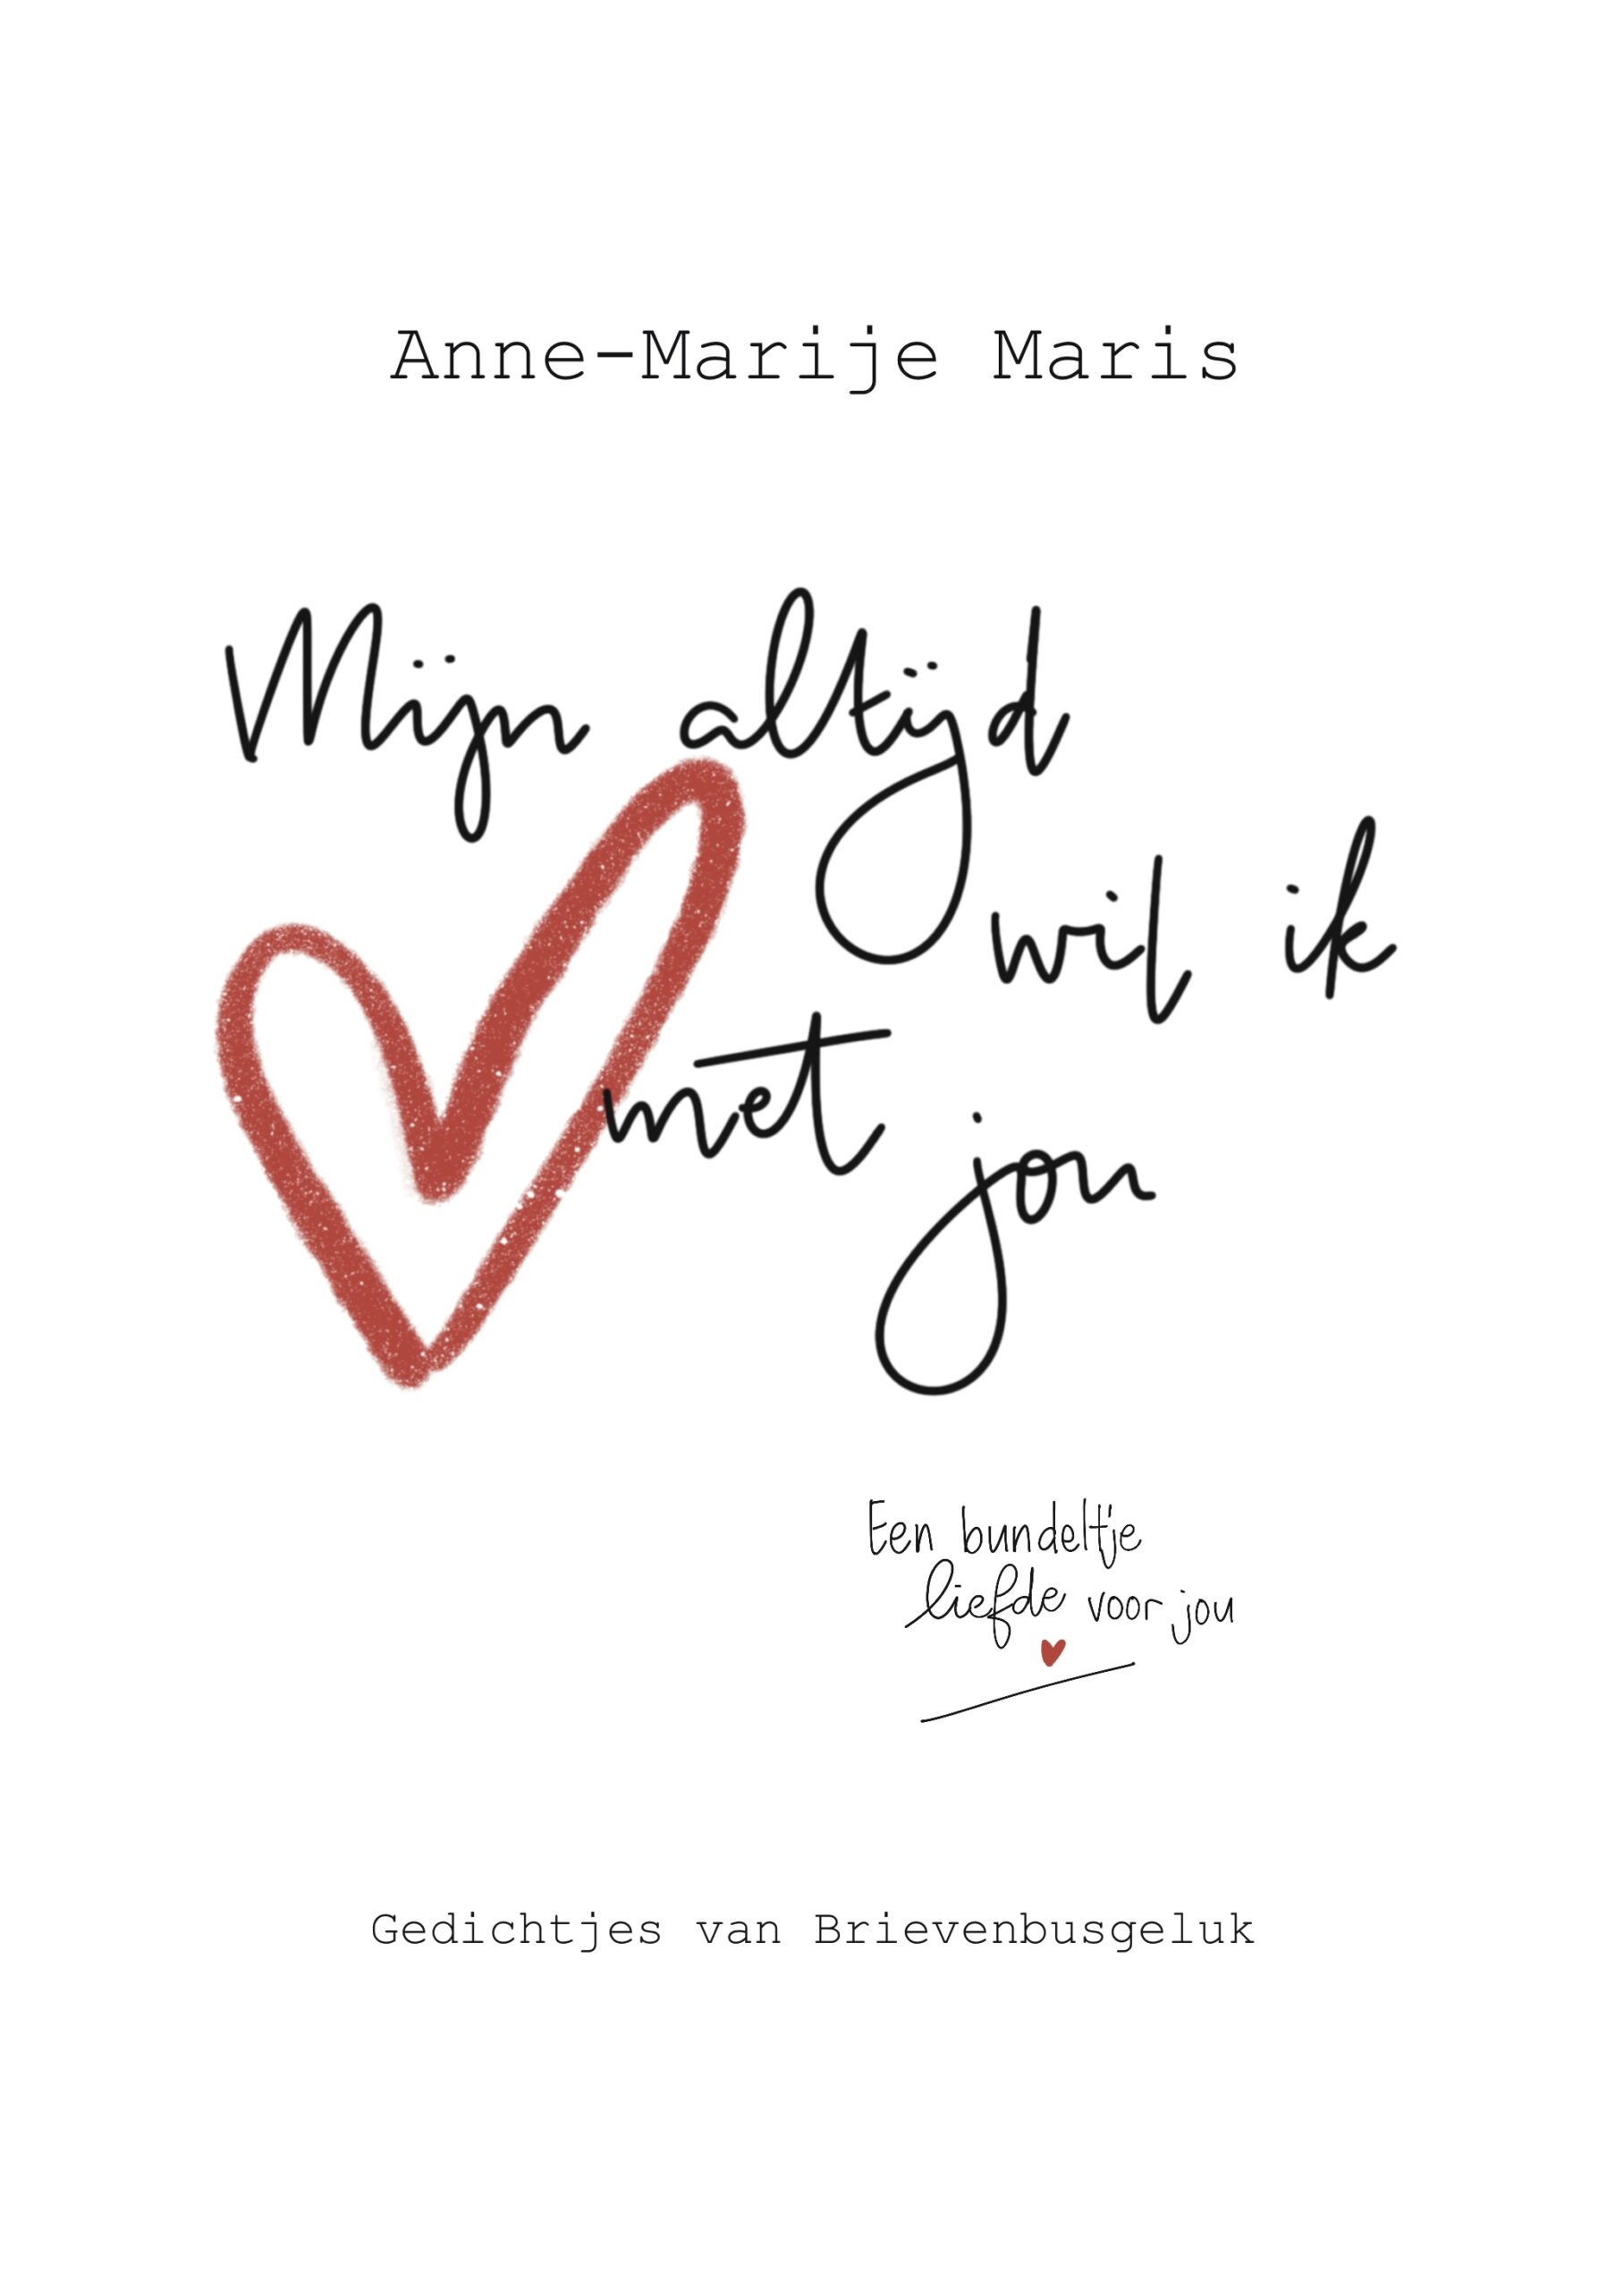 Anne-Marije Maris
Mijn altijd
wil ik
met jou
Een bundeltje
liefde voor jou
Gedichtjes van Brievenbusgeluk